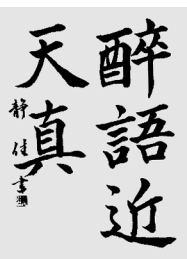 醉語近
天真
静佳書